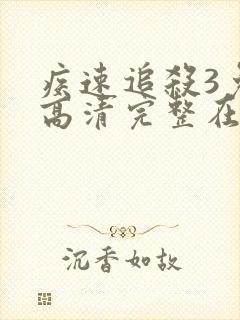 疾速追殺3
高清完整在
沉香如故